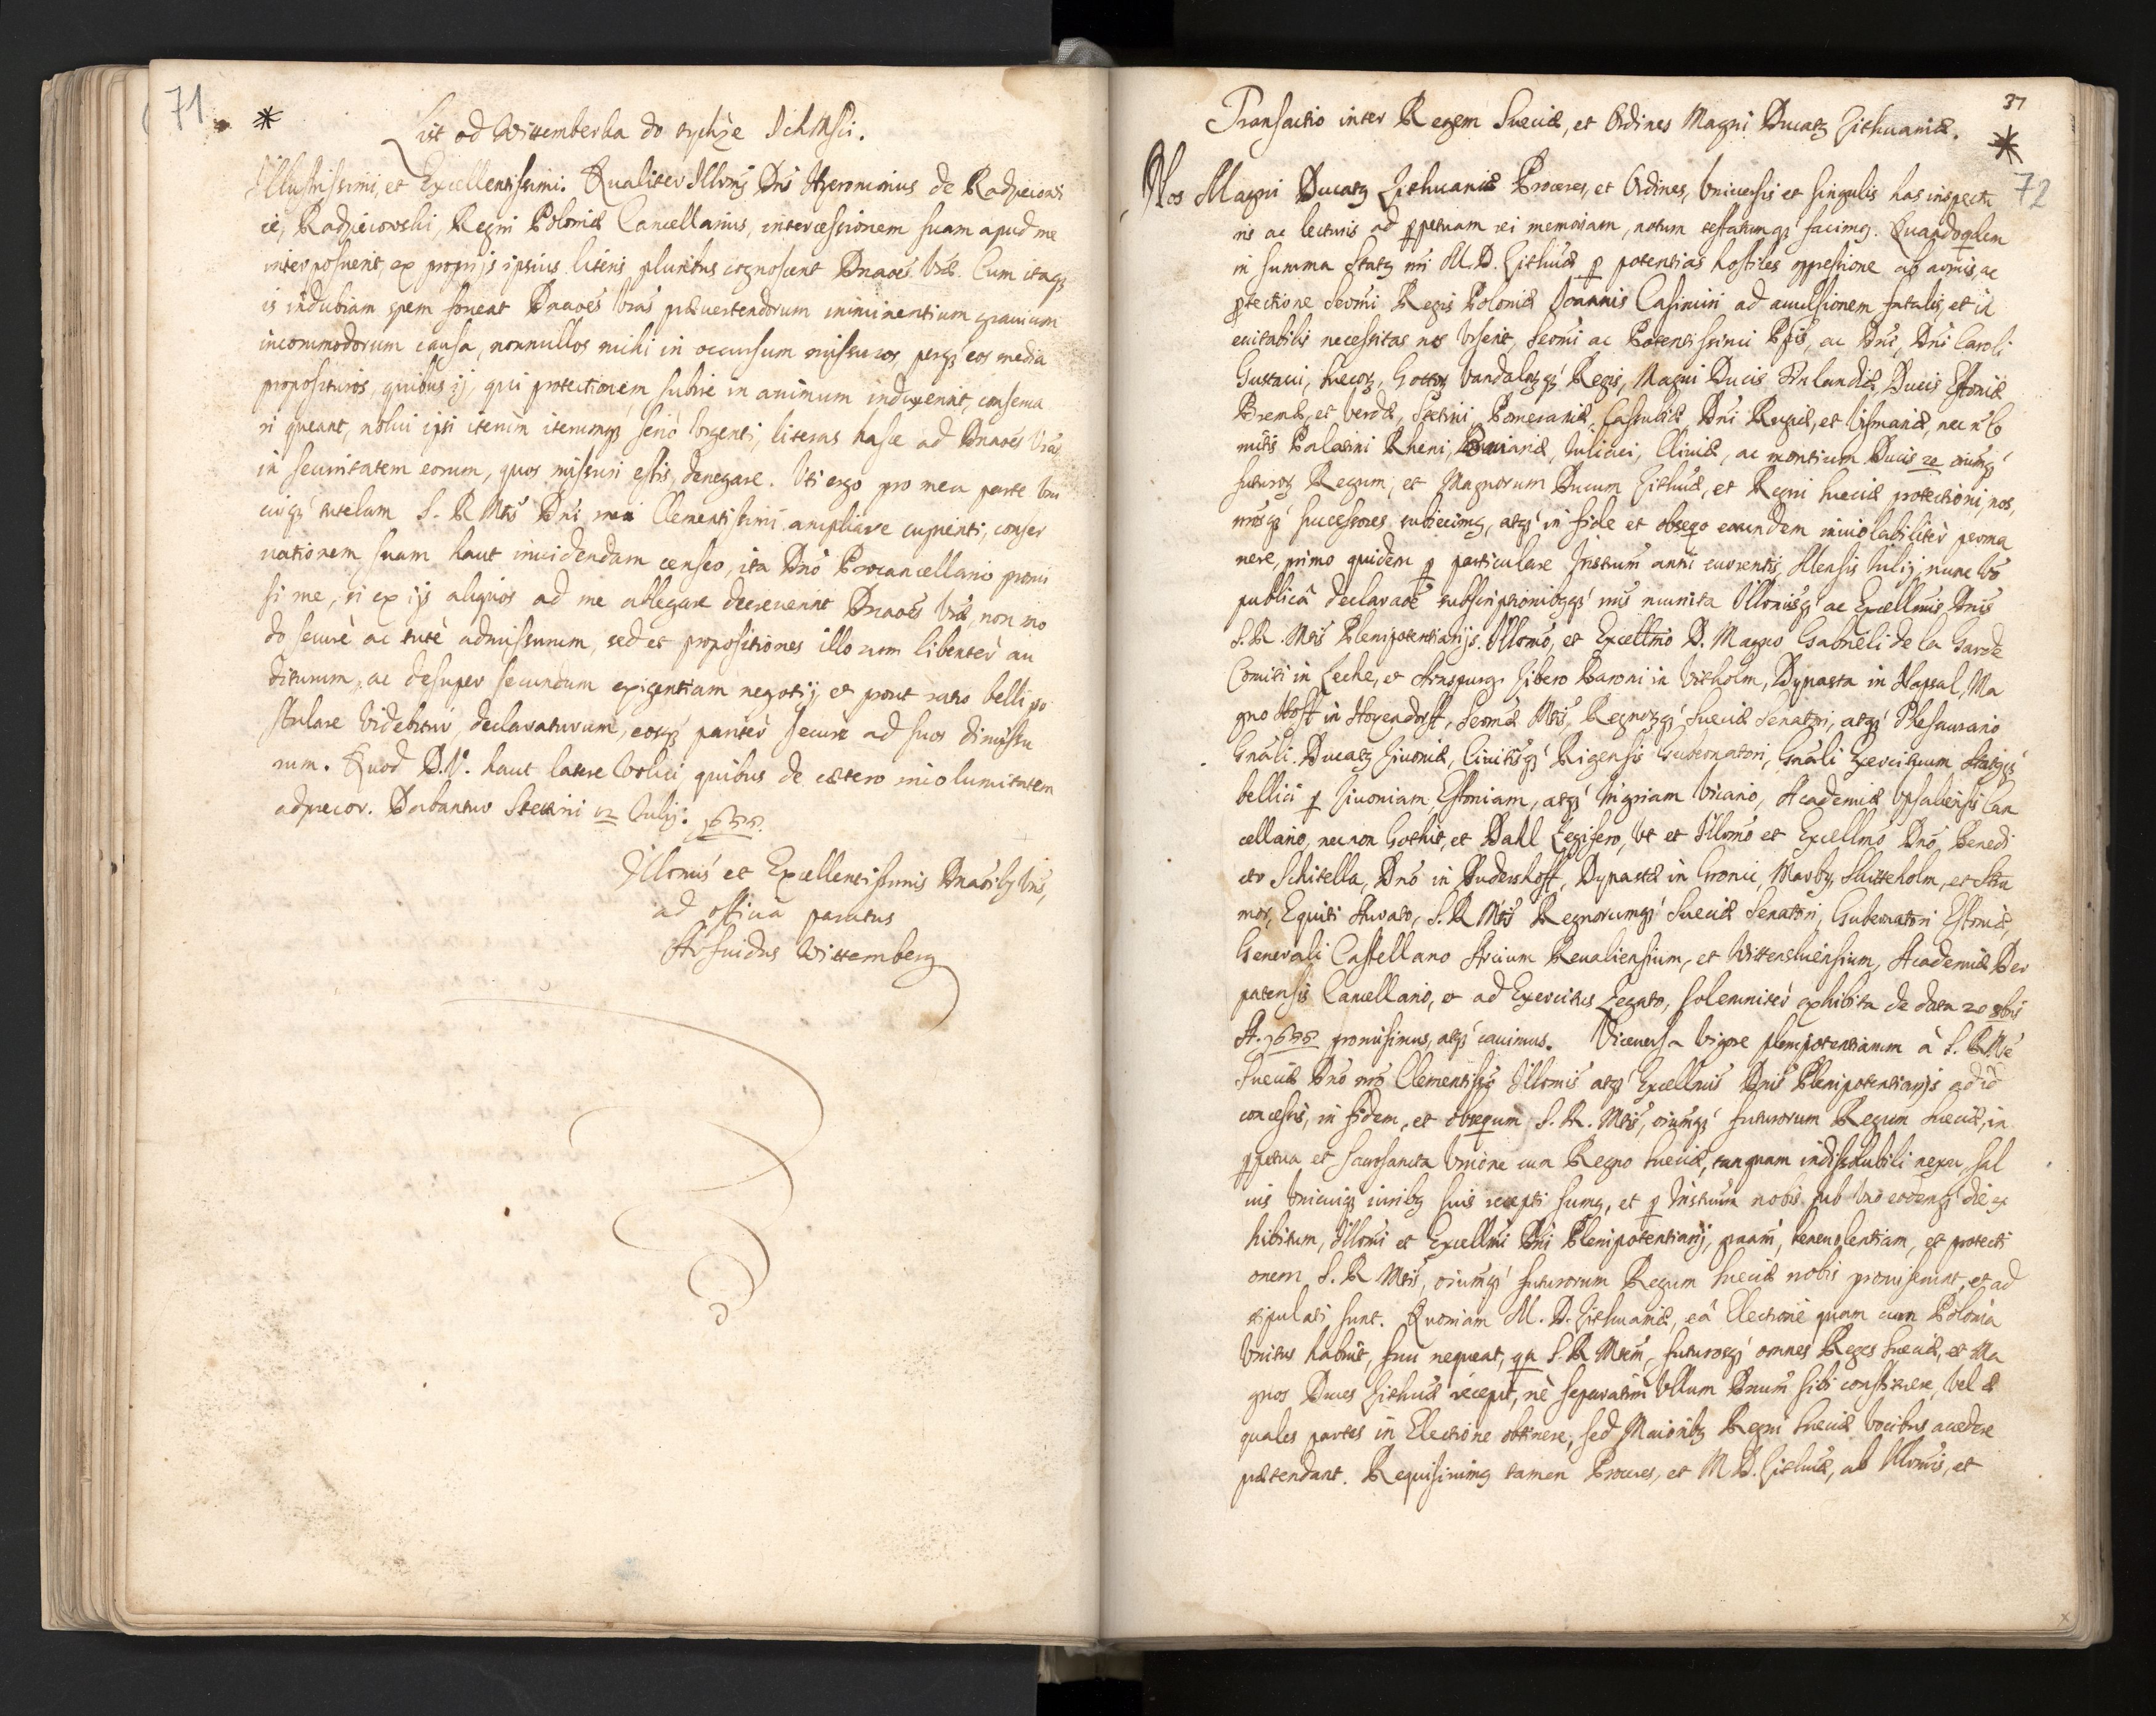 71.
*
List od Wittemberka do tychze Ichmsci.
Illustrissimi, et Excellentissimi. Qualiter Illmus Dns Hyeronimus de Radzieiowi
ce, Radzieiowski, Regni Poloniæ Cancellarius, intercessionem suam apud me
interposuerit, ex proprijs ipsius literis pluribus cognoscent Dnaoes Vræ. Cum itaq;
is indubiam spem foueat Dnaoes Vras præuertendorum imminentium grauium
incommodorum causa, nonnullos mihi in occursum missuros, perq; eos media
proposituros, quibus ij, qui protectionem subire in animum induxerint, conserua
ri queant, nolui ipsi iterùm iterumq; seriò vrgenti, literas hasce ad Dnaoes Vras
in securitatem eorum, quos missuri estis, denegare. Vti ergo pro mea parte vni
cuiq; tutelam S. R Mtis Dni mei Clementissimi ampliare cupienti, conser
uationem suam haut inuidendam censeo, ita Dno Procancellario promi
si me, si ex ijs aliquos ad me ablegare decreuerint Dnaoes Vræ, non mo
do securè ac tutè admissurum, sed et propositiones illorum libenter au
diturum, ac desuper secundum exigentiam negotij et prout ratio belli po
stulare videbitur, declaraturum, eosq; pariter secure ad suos dimissu
rum. Quod D.V. haut latere volui quibus de cætero incolumitatem
adprecor. Dabantur Stetini 12 Julij. 1655.
Illmis et Excellentissimis Dnaoibq Vris,
ad officia paratus
Arfuidus Wittemberg
37
*
72
Transactio inter Regem Sueciæ, et Ordines Magni Ducatq Lithuaniæ.
Nos Magni Ducatq Lithuaniæ Proceres, et Ordines, Vniuersis et singulis has inspectu
ris ac lecturis ad ppetuam rei memoriam, notum testatumq; facimq. Quandoqdem
in summa Statq nri M.D. Lithuæ p potentias hostiles oppressione ab armis, ac
ptectione Sermi Regis Poloniæ Joannis Casimiri ad auulsionem fatalis, et in
euitabilis necessitas nos vrserit, Sermi ac Potentissimi Pcis, ac Dni, Dni Caroli
Gustaui, Suecor, Gottor Vandalorq; Regis, Magni Ducis Finlandiæ, Ducis Estoniæ
Bremæ, et Verdæ, Stetini Pomeraniæ, Cassubiæ, Dni Rugiæ, et Vismariæ, nec n Co
mitis Palatini Rheni, Bauariæ, Iuliaci, Cliuiæ, ac montium Ducis &c oiumq;
futuror Regum, et Magnorum Ducum Lithuæ, et Regni Sueciæ protectioni, nos,
nrosq; successores subiecimq, atq; in fide et obseqo eorundem inuiolabiliter perma
nere, primo quidem p particulare Instrum anni currentis, Mensis Iulij, nunc vo
publicâ declaraoe subscriptionibqq; nris munita Illmisq; ac Excellmis Dnis
S. R. Mtis Plenipotentiarijs. Illmo, et Excellmo D. Magno Gabrieli de la Garde
Comiti in Leche, et Arnspurg, Libero Baroni in Vikholm, Dynastæ in Hapsal, Ma
gno Hoff in Hoyendorff, Sermæ Mtis, Regnorq; Sueciæ Senatori, atq; Thesaurario
Gnali. Ducatq Liuoniæ, Ciuitisq; Rigensis Gubernatori, Gnali Exercituum Statqq;
bellici p Liuoniam, Estoniam, atq; Ingriam Vicario, Academiæ Vpsaliensis Can
cellario, necnon Gothiæ, et Dahl Legifero, Vt et Illmo et Excellmo Dno, Benedi
cto Schitella, Dno in Dudershoff, Dynastæ in Gronic, Marby, Skitteholm, et Stra
mor, Equiti Aurato, S. R Mtis Regnorumq; Sueciæ Senatori, Gubernatori Estoniæ,
Generali Castellano Arcium Reualiensium, et Wittensteinsium, Academiæ Der
patensis Cancellario, et ad Exercitus Legato, solemniter exhibita de data 20 8bris
A. 1655 promisimus, atq; cauimus. Viceuersa vigore plenipotentiarum à S. R Mte
Sueciæ Dno nro Clementisso Illmis atq; Excellmis Dnis Plenipotentiarijs ad id
concessis, in fidem, et obsequm S. R. Mtis, oiumq; futurorum Regum Sueciæ, in
ppetua et sacrosancta Vnione cum Regno Sueciæ, tanquam indissolubili nexu, sal
uis vnicuiq; iuribq suis recepti sumq, et p Instrum nobis sub vno eodemq; die ex
hibitum, Illmi et Excellmi Dni Plenipotentiarij, graam, beneuolentiam, et protecti
onem S. R Mtis, oiumq; futurorum Regum Sueciæ nobis promiserunt, et ad
stipulati sunt. Quoniam M. D. Lithuaniæ, eâ Electione quam cum Polonia
Vnitus habuit, frui nequeat, qa S. R Mtem, futurosq; omnes Reges Sueciæ, et Ma
gnos Duces Lithuæ recepit, nè separatim vllum Dnum sibi constituere, vel æ
quales partes in Electione obtinere, sed Maioribq Regni Sueciæ vocibus accedere
prætendant. Requisiuimq tamen Proceres, et M D. Lithuæ, ab Illmis, et